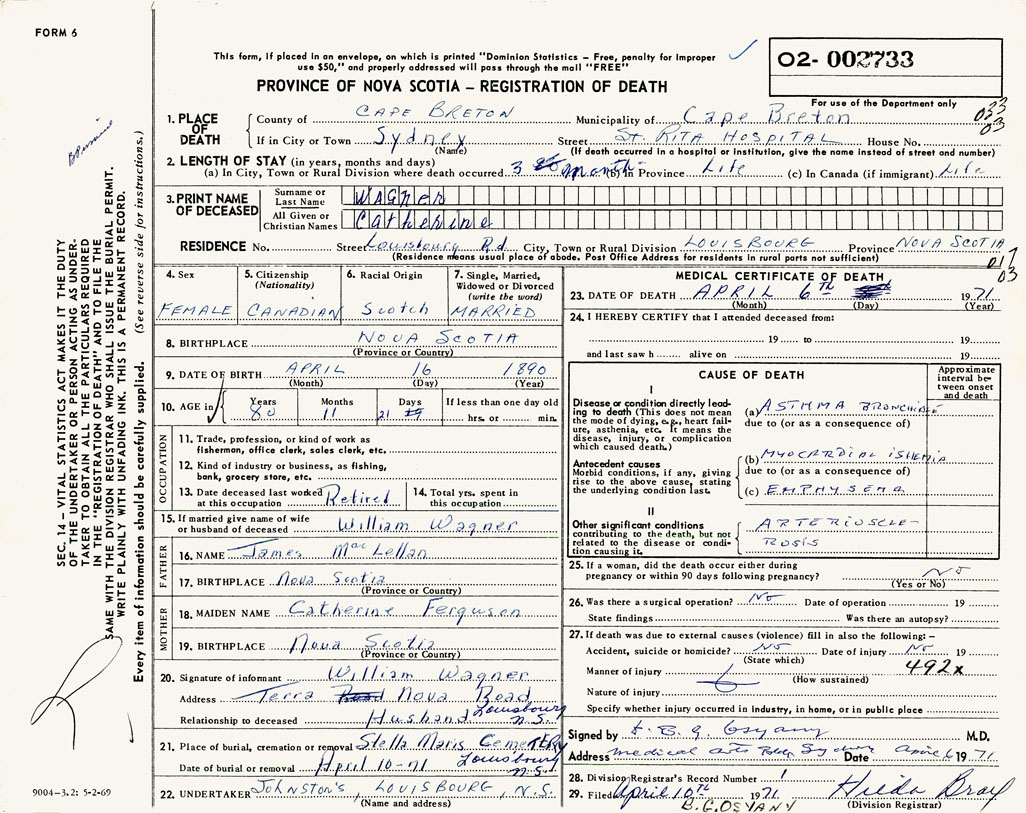 FORM 6
This form, if placed in an envelope, on which is printed "Dominion Statistics – Free, penalty for improper
use $50," and properly addressed will pass through the mail "FREE"
O2- 002733
PROVINCE OF NOVA SCOTIA – REGISTRATION OF DEATH
For use of the Department only
033
03
1. PLACE OF DEATH
County of CAPE BRETON Municipality of Cape Breton
If in City or Town Sydney Street St. RITA HOSPITAL House No.
(Name) (If death occurred in a hospital or institution, give the name instead of street and number)
2. LENGTH OF STAY (in years, months and days)
(a) In City, Town or Rural Division where death occurred 3 months (b) in Province Life (c) In Canada (if immigrant) Life
3. PRINT NAME OF DECEASED
Surname or Last Name WAGNER
All Given or Christian Names Catherine
RESIDENCE No. Street Louisbourg Rd City, Town or Rural Division LOUISBOURG Province NOVA SCOTIA
(Residence means usual place of abode. Post Office Address for residents in rural parts not sufficient)
017
03
4. Sex
FEMALE
5. Citizenship
(Nationality)
CANADIAN
6. Racial Origin
Scotch
7. Single, Married,
Widowed or Divorced
(write the word)
MARRIED
8. BIRTHPLACE NOVA SCOTIA
(Province or Country)
9. DATE OF BIRTH APRIL 16 1890
(Month) (Day) (Year)
10. AGE in
Years Months Days If less than one day old
80 11 21 hrs. or min.
OCCUPATION
11. Trade, profession, or kind of work as
fisherman, office clerk, sales clerk, etc.
12. Kind of industry or business, as fishing,
bank, grocery store, etc.
13. Date deceased last worked
at this occupation Retired
14. Total yrs. spent in
this occupation
15. If married give name of wife
or husband of deceased William Wagner
FATHER
16. NAME James MacLellan
17. BIRTHPLACE Nova Scotia
(Province or Country)
MOTHER
18. MAIDEN NAME Catherine Ferguson
19. BIRTHPLACE Nova Scotia
(Province or Country)
20. Signature of informant William Wagner
Address Terra Road Nova Road
Louisbourg
Relationship to deceased Husband N.S.
21. Place of burial, cremation or removal Stella Maris CemeTERy
Date of burial or removal April 10-71 Louisbourg
N.S.
22. UNDERTAKER JOHNSTON'S, LOUISBOURG, N.S.
(Name and address)
MEDICAL CERTIFICATE OF DEATH
23. DATE OF DEATH APRIL 6TH 1971
(Month) (Day) (Year)
24. I HEREBY CERTIFY that I attended deceased from:
19 to 19
and last saw h alive on 19
CAUSE OF DEATH
Approximate
interval be-
tween onset
and death
I
Disease or condition directly lead-
ing to death (This does not mean
the mode of dying, e.g., heart fail-
ure, asthenia, etc. It means the
disease, injury, or complication
which caused death.)
(a) ASTHMA BRONCHIALE
due to (or as a consequence of)
Antecedent causes
Morbid conditions, if any, giving
rise to the above cause, stating
the underlying condition last.
(b) MYOCARDIAL ISHEMIA
due to (or as a consequence of)
(c) EMPHYSEMA
II
Other significant conditions
contributing to the death, but not
related to the disease or condi-
tion causing it.
ARTERIOSCLE-
ROSIS
25. If a woman, did the death occur either during
pregnancy or within 90 days following pregnancy? No
(Yes or No)
26. Was there a surgical operation? No Date of operation 19
State findings Was there an autopsy?
27. If death was due to external causes (violence) fill in also the following: –
Accident, suicide or homicide? No Date of injury No 19
(State which)
Manner of injury 492x
(How sustained)
Nature of injury
Specify whether injury occurred in industry, in home, or in public place
Signed by B. G. Osvany M.D.
Address Medical Arts Bldg Sydney Date April 6 1971
28. Division Registrar's Record Number 1
29. Filed April 10th 1971 Hilda Bray
B.G. OSVANY (Division Registrar)
SEC. 14 – VITAL STATISTICS ACT MAKES IT THE DUTY
OF THE UNDERTAKER OR PERSON ACTING AS UNDER-
TAKER TO OBTAIN ALL THE PARTICULARS REQUIRED
IN THE "REGISTRATION OF DEATH" AND TO FILE THE
SAME WITH THE DIVISION REGISTRAR WHO SHALL ISSUE THE BURIAL PERMIT.
WRITE PLAINLY WITH UNFADING INK. THIS IS A PERMANENT RECORD.
Every item of information should be carefully supplied. (See reverse side for instructions.)
9004-3.2: 5-2-69